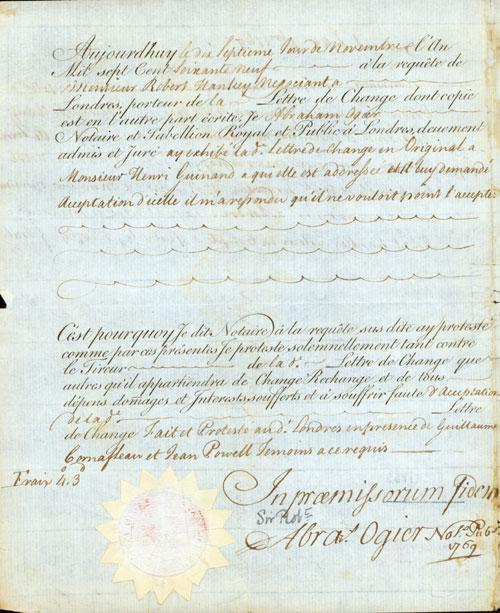 Aujourdhuy le dix Septieme Jour de Novembre l'An
Mil Sept Cent Soixante Neuf à la requête de
Monsieur Robert Hankey Negociant a
Londres, porteur de la Lettre de Change dont copie
est en l'autre part écrite, Je Abraham Ogier
Notaire et Tabellion Royal et Public à Londres, deuement
admis et Juré ay exhibé lad. lettre de Change en Original a
Monsieur Henri Guinand a qui elle est addressée et luy demandé
Acceptation d'icelle il m'a repondu qu'il ne vouloit point l'accepter
C'est pourquoy Je dit Notaire, à la requête sus dite ay protesté
comme par ces présentes Je proteste solemnellement tant contre
le Tireur de lad. Lettre de Change que
autres qu'il appartiendra de Change Rechange et de tous
dépens domages et Interests soufferts et à souffrir faute d'Acceptation
de lad. Lettre
de Change Fait et Protesté aud. Londres en presence de Guillaume
et Jean Powell Temoins a ce requis
Fraix 4.s 3.d
In præmissorum fidem
Sir Robt
Abra. Ogier Not. Pub.
1769